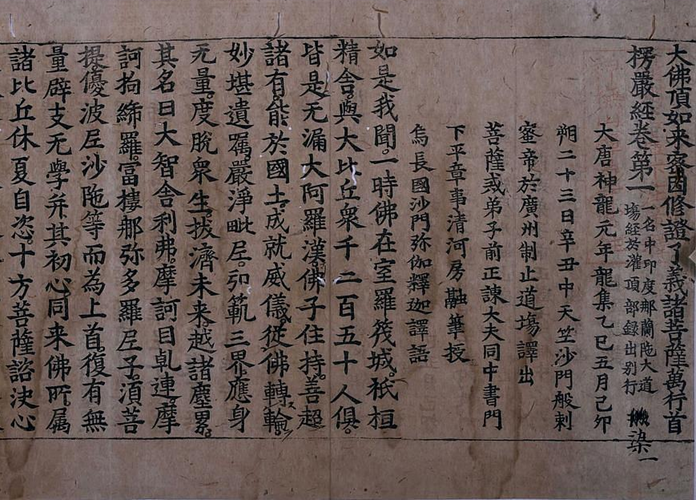 大佛頂如来密因修證了義諸菩薩萬行首
楞嚴經卷第一 一名中印度那蘭陁大道塲經於灌頂部録出别行 染一
大唐神龍元年龍集乙巳五月己卯
朔二十三日辛丑中天竺沙門般剌
蜜帝於廣州制止道塲譯出
菩薩戒弟子前正諫大夫同中書門
下平章事清河房融筆授
烏長國沙門弥伽釋迦譯語
如是我聞一時佛在室羅筏城祇桓
精舎與大比丘衆千二百五十人俱
皆是无漏大阿羅漢佛子住持善超
諸有能於國土成就威儀從佛轉輪
妙堪遺囑嚴淨毗尼弘範三界應身
无量度脫衆生拔濟未来越諸塵累
其名曰大智舎利弗摩訶目乹連摩
訶拘絺羅富樓那弥多羅尼子湏菩
提優波尼沙陁等而為上首復有無
量辟支无學并其初心同来佛所属
諸比丘休夏自恣十方菩薩諮決心